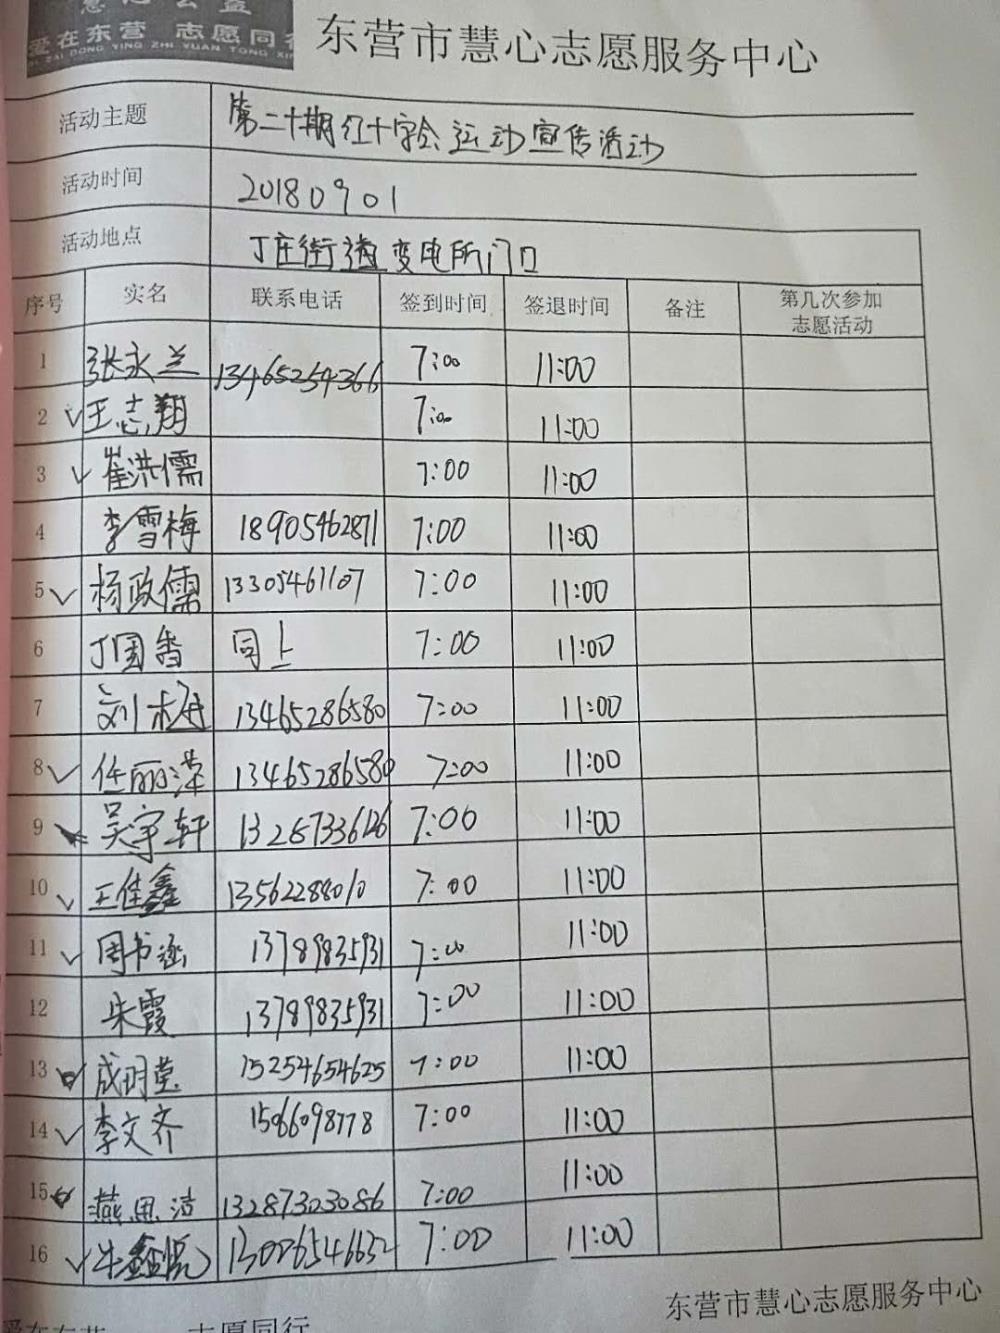 爱在东营 志愿同
AI ZAI DONG YING ZHI YUAN TONG XI
东营市慧心志愿服务中心
活动主题 第二十期红十字会运动宣传活动
活动时间 20180901
活动地点 丁庄街道变电所门口
序号 实名 联系电话 签到时间 签退时间 备注 第几次参加
志愿活动
1 张永兰 13465254366 7:00 11:00
2 ✓ 王志翔 7:00 11:00
3 ✓ 崔洪儒 7:00 11:00
4 李雪梅 18905462871 7:00 11:00
5 ✓ 杨政儒 13305461107 7:00 11:00
6 丁国香 同上 7:00 11:00
7 刘 13465286580 7:00 11:00
8 ✓ 任丽滢 13465286580 7:00 11:00
9 吴宇轩 7:00 11:00
10 ✓ 王佳鑫 13562288010 7:00 11:00
11 ✓ 周书涵 13789835931 7:00 11:00
12 朱霞 13789835931 7:00 11:00
13 成明莹 15254654625 7:00 11:00
14 ✓ 李文齐 15066098778 7:00 11:00
15 燕思洁 13287303086 7:00 11:00
16 ✓ 牛鑫悦 7:00 11:00
东营市慧心志愿服务中心
爱在东营 志愿同行